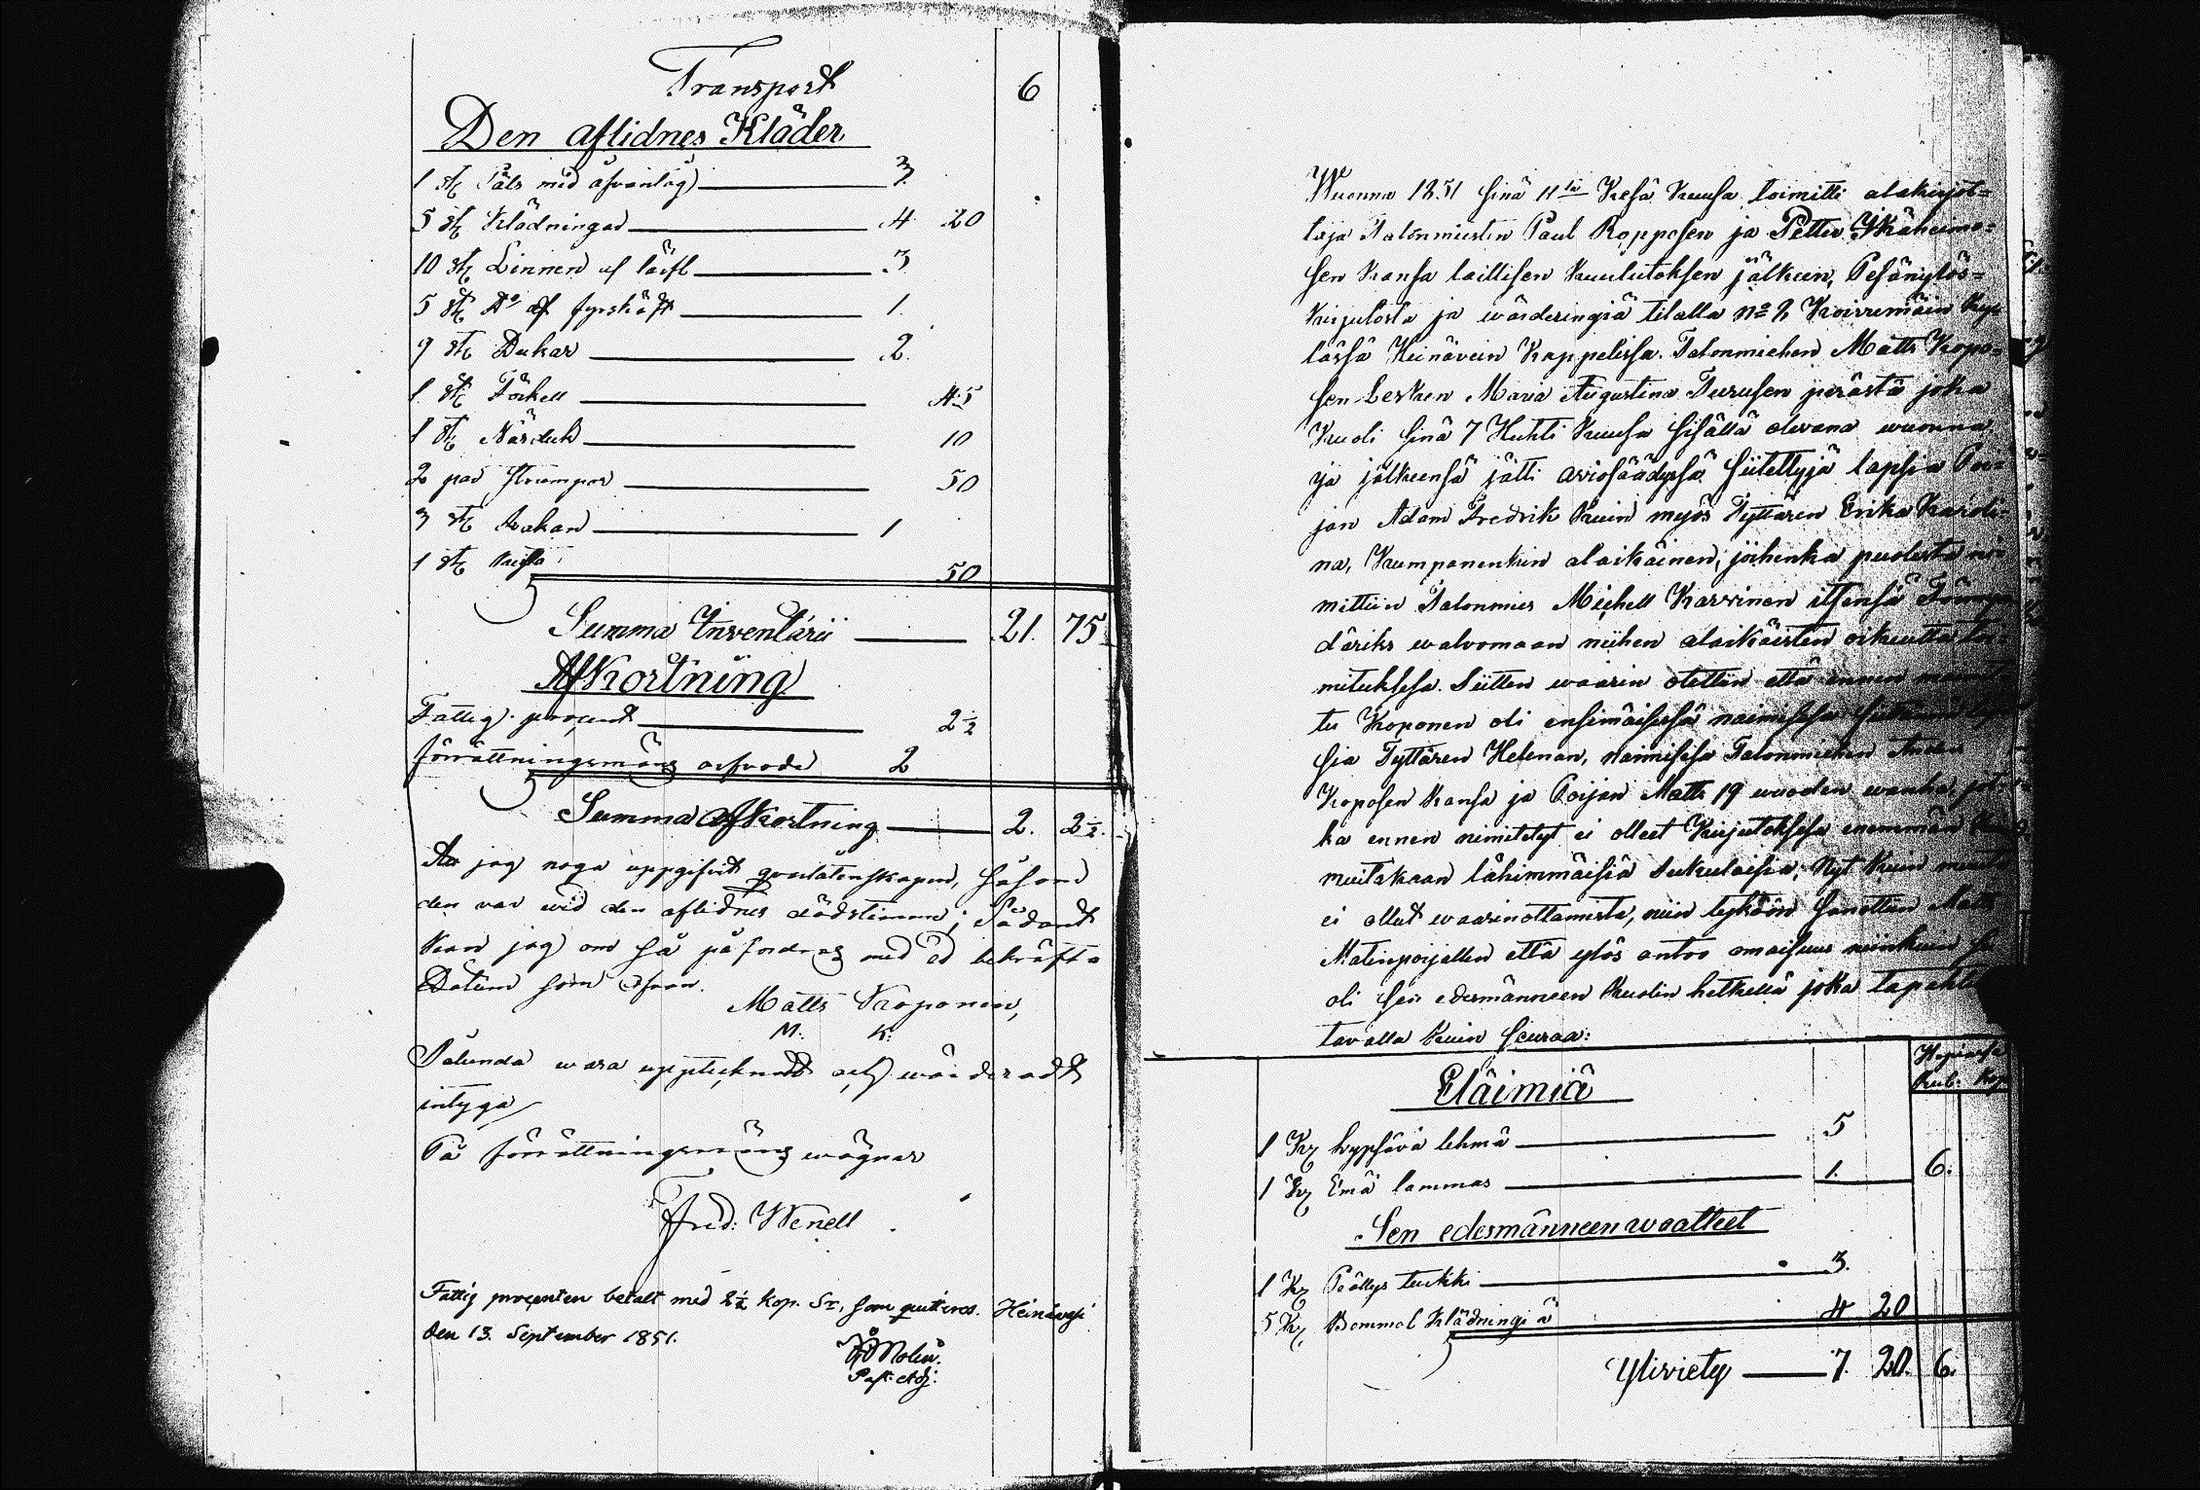 Transport 6
Den aflidnes Kläder
1 st Päls med öfvantög 3.
5 st Klädningar 4 20
10 st Linnen af lärft 3
5 st Do af fyrskäft 1.
9 st Dukar 2.
1 st Förkell 45
1 st Näsduk 10
2 par Strumpor 50
3 st Lakan 1
1 st Kista 50
Summa Inventarii 21. 75
Afkortning
Fattig procent 2½
förrättningsmäns arfvode 2
Summa Afkortning 2. 2½.
At jag noga uppgifvit qvarlåtenskapen, såsom
den var wid den aflidnes dödstimma; Sådant
kan jag om så påfordras med ed bekräfta
Datum som ofvan.
Matts Koponen,
M. K.
Sålunda wara upptecknadt och wärderadt
intyga
På förrättningsmäns wägnar
Fred: Wenell
Fattig procenten betalt med 2½ kop. Sr, som qvitteras. Heinävesi
den 13. September 1851.
Molin.
Past: Adj:
Wuonna 1851 sinä 11tä Kesä kuusa toimitti alakirjot=
taja Talonmiesten Paul Ropposen ja Petter Ikäheimo=
sen kansa laillisen kuulutoksen jälkeen, Pesänylös=
kirjutosta ja wärderingiä tilalla No 2 Koirumäin ky=
lässä Heinävein Kappelissa. Talonmiehen Matts Kopo=
sen Lesken Maria Augustina Turusen perästä joka
kuoli sinä 7 Huhti kuusa sisällä olevana wuonna,
ja jälkeensä jätti aviosäädyssä siitettyjä lapsia Poi=
jan Adam Fredrik kuin myös Tyttären Erika Karoli=
na, kumpanenkin alaikäinen; joihenka puolesta ni=
mittiin Talonmies Michell Karvinen itsensä
däriks walvomaan niihen alaikäisten oikeutta toi=
mituksesa. Siitten waarin otettiin että ennen
tu Koponen oli ensimäisessä naimisesa
sia Tyttären Helenan, naimisesa Talonmiehen
Koposen kansa ja Poijan Matts 19 wuoden wanha, jot=
ka ennen nimitetyt ei olleet Kirjutoksesa enemmän
muitakaan lähimmäisiä sukulaisia; Nyt kuin muuta
ei ollut waarinottamista, niin tykön sanottiin Matts
Matinpoijallen että ylös antoo omaisuus niinkuin se
oli sen edesmänneen kuolin hetkellä joka tapahtu
tavalla kuin seuraa:
Hopeassa
Rub: Kop
Eläimiä
1 K: lypsävä lehmä 5
1 K: Emä lammas 1. 6.
Sen edesmänneen waatteet
1 K: Päällys turkki 3.
5 K: Bommol klädningiä 4 20
Yliviety 7. 20. 6.